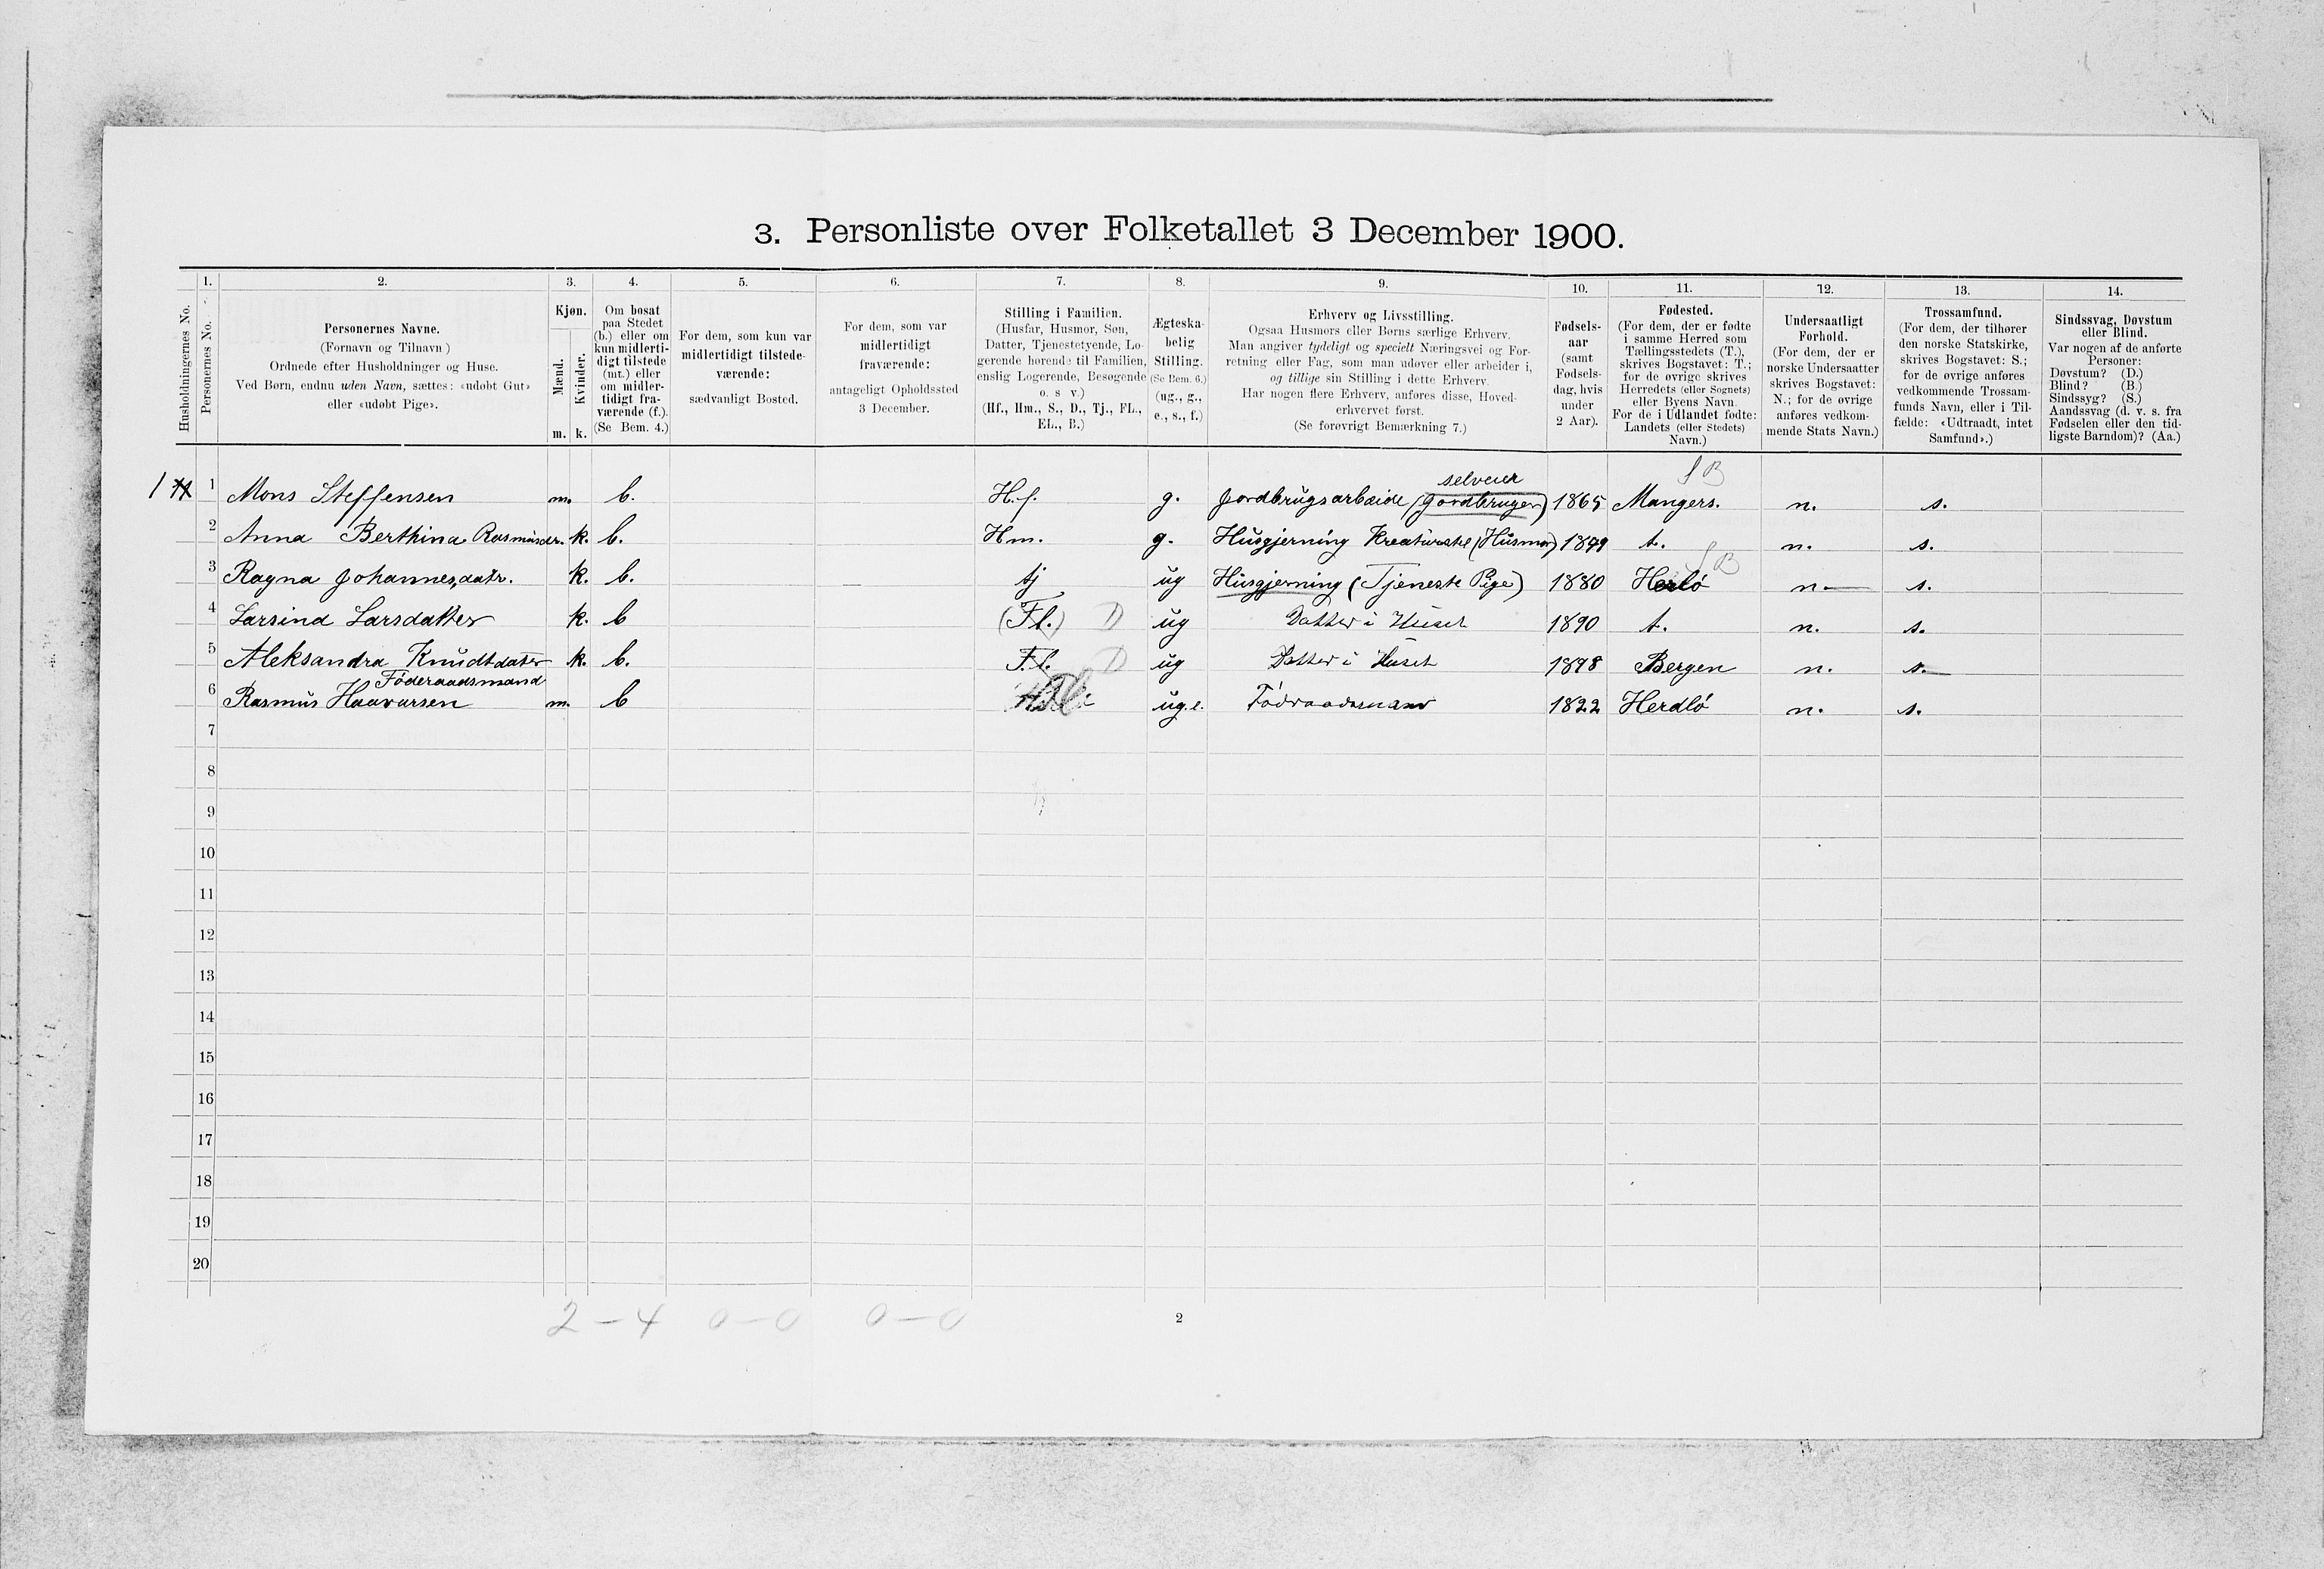 3. Personliste over Folketallet 3 December 1900.
1. 2. 3. 4. 5. 6. 7. 8. 9. 10. 11. 12. 13. 14.
Husholdningernes No.
Personernes No.
Personernes Navne.
(Fornavn og Tilnavn)
Ordnede efter Husholdninger og Huse.
Ved Børn, endnu uden Navn, sættes: «udøbt Gut»
eller «udøbt Pige».
Kjøn.
Mænd.
Kvinder.
m. k.
Om bosat
paa Stedet
(b.) eller om
kun midlerti-
digt tilstede
(mt.) eller
om midler-
tidigt fra-
værende (f.).
(Se Bem. 4.)
For dem, som kun var
midlertidigt tilstede-
værende:
sædvanligt Bosted.
For dem, som var
midlertidigt
fraværende:
antageligt Opholdssted
3 December.
Stilling i Familien.
(Husfar, Husmor, Søn,
Datter, Tjenestetyende, Lo-
gerende hørende til Familien,
enslig Logerende, Besøgende
o. s v.)
(Hf., Hm., S., D., Tj., FL.,
EL., B.)
Ægteska-
belig
Stilling.
(Se Bem. 6.)
(ug., g.,
e., s., f.)
Erhverv og Livsstilling.
Ogsaa Husmors eller Børns særlige Erhverv.
Man angiver tydeligt og specielt Næringsvei og For-
retning eller Fag, som man udøver eller arbeider i,
og tillige sin Stilling i dette Erhverv.
Har nogen flere Erhverv, anføres disse, Hoved-
erhvervet først.
(Se forøvrigt Bemærkning 7.)
Fødsels-
aar
(samt
Fødsels-
dag, hvis
under
2 Aar).
Fødested.
(For dem, der er fødte
i samme Herred som
Tællingsstedets (T.),
skrives Bogstavet: T.;
for de øvrige skrives
Herredets (eller Sognets)
eller Byens Navn.
For de i Udlandet fødte:
Landets (eller Stedets)
Navn.)
Undersaatligt
Forhold.
(For dem, der er
norske Undersaatter
skrives Bogstavet:
N.; for de øvrige
anføres vedkom-
mende Stats Navn.)
Trossamfund.
(For dem, der tilhører
den norske Statskirke,
skrives Bogstavet: S.;
for de øvrige anføres
vedkommende Trossam-
funds Navn, eller i Til-
fælde: «Udtraadt, intet
Samfund».)
Sindssvag, Døvstum
eller Blind.
Var nogen af de anførte
Personer:
Døvstum? (D.)
Blind? (B.)
Sindssyg? (S.)
Aandssvag (d. v. s. fra
Fødselen eller den tid-
ligste Barndom)? (Aa.)
selveier S B
1 1 Mons Steffensen m. b. H.f. g. Jordbrugsarbeide (Jordbruger) 1865 Mangers. n. s.
2 Anna Berthina Rasmusdr. k. b. Hm. g. Husgjerning Kreaturstel (Husmor) t. n. s.
S B
3 Ragna Johannesdatr. k. b. tj ug Husgjerning (Tjeneste Pige) 1880 Herlö n. s.
4 Larsind Larsdatter k. b (Fl.) D ug Datter i Huset 1890 t. n. s.
5 Aleksandra Knudtdater k. b. F.l. D ug Datter i Huset 1898 Bergen n. s.
Föderaadsmand
6 Rasmus Haavarsen m. b ug. e. Födraadsmand 1822 Herdlö n. s.
7
8
9
10
11
12
13
14
15
16
17
18
19
20
2 – 4 0 – 0 0 – 0
2